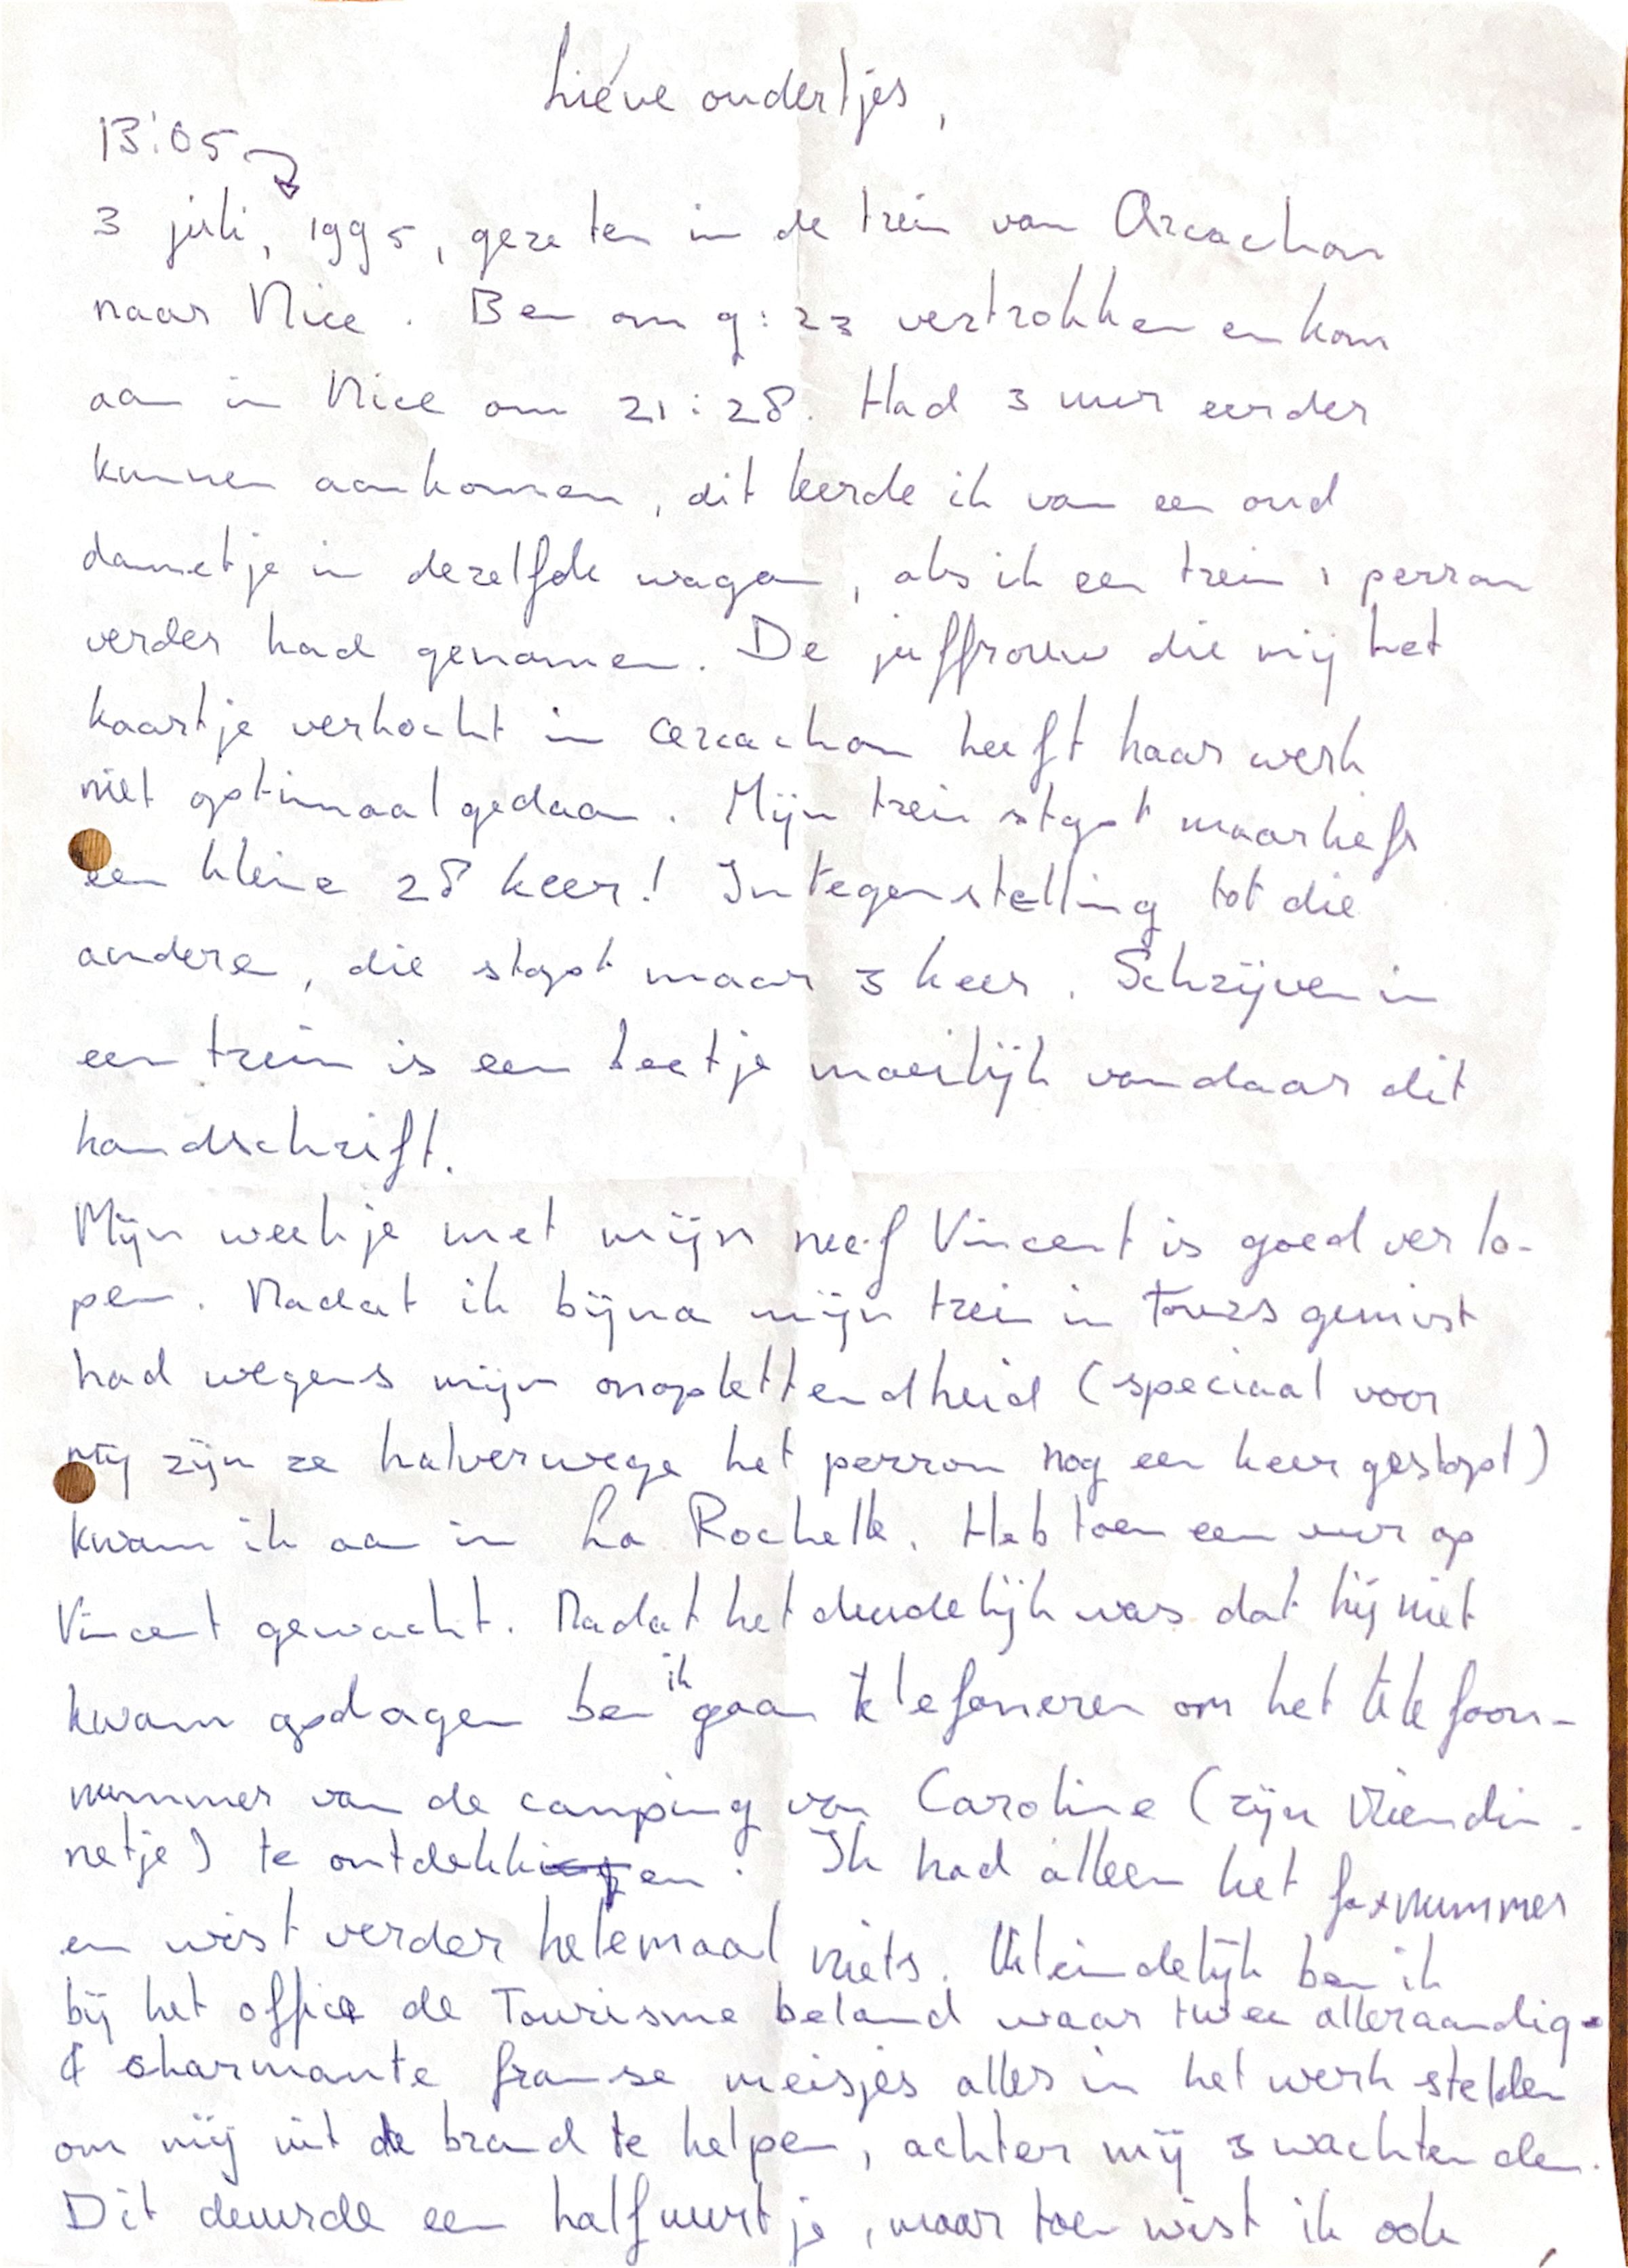 Lieve oudertjes,
13:05
3 juli, 1995, gezeten in de trein van Arcachon
naar Nice. Ben om 9:23 vertrokken en kom
aan in Nice om 21:28. Had 3 uur eerder
kunnen aankomen, dit leerde ik van een oud
dametje in dezelfde wagon, als ik een trein 1 perron
verder had genomen. De juffrouw die mij het
kaartje verkocht in Arcachon heeft haar werk
niet optimaal gedaan. Mijn trein stopt maarliefst
een kleine 28 keer! In tegenstelling tot die
andere, die stopt maar 3 keer. Schrijven in
een trein is een beetje moeilijk vandaar dit
handschrift.
Mijn weekje met mijn neef Vincent is goed verlo-
pen. Nadat ik bijna mijn trein in Tours gemist
had wegens mijn onoplettendheid (speciaal voor
mij zijn ze halverwege het perron nog een keer gestopt)
kwam ik aan in La Rochelle. Heb toen een uur op
Vincent gewacht. Nadat het duidelijk was dat hij niet
kwam opdagen ben ik gaan telefoneren om het telefoon-
nummer van de camping van Caroline (zijn vriendin-
netje) te ontdekken. Ik had alleen het faxnummer
en wist verder helemaal niets. Uiteindelijk ben ik
bij het office de Tourisme beland waar twee alleraardig-
& charmante franse meisjes alles in het werk stelden
om mij uit de brand te helpen, achter mij 3 wachtenden.
Dit duurde een half uurtje, maar toen wist ik ook